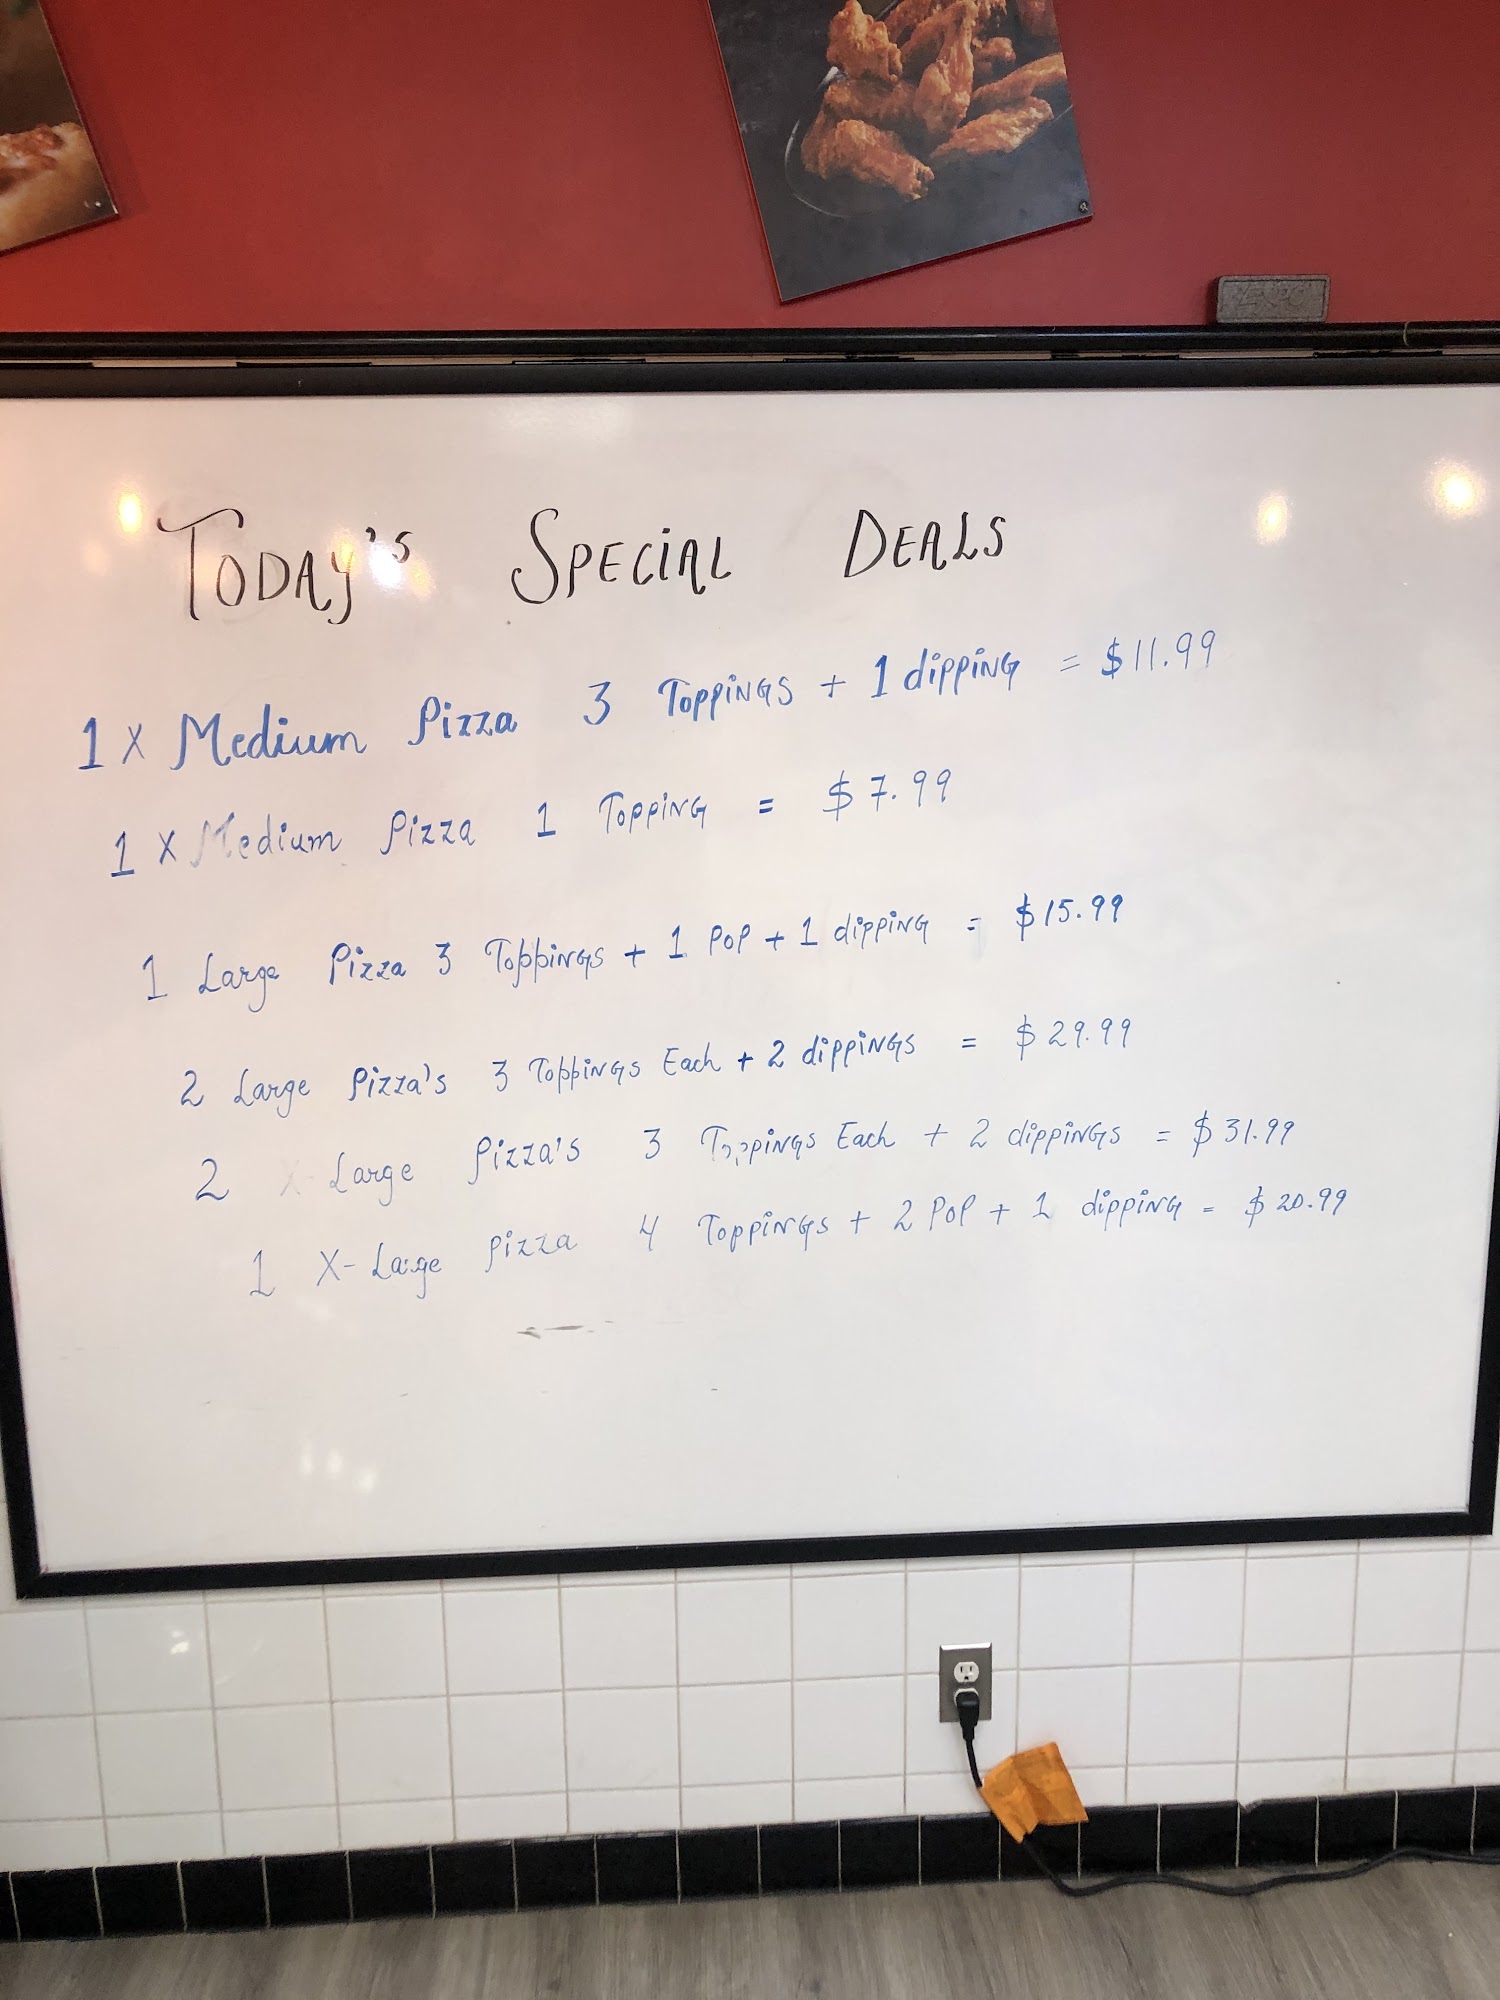 EXPO
TODAY'S SPECIAL DEALS
1 X Medium Pizza 3 Toppings + 1 dipping = $11.99
1 X Medium Pizza 1 Topping = $7.99
1 Large Pizza 3 Toppings + 1 Pop + 1 dipping = $15.99
2 Large Pizza's 3 Toppings Each + 2 dippings = $29.99
2 X-Large Pizza's 3 Toppings Each + 2 dippings = $31.99
1 X-Large Pizza 4 Toppings + 2 Pop + 1 dipping = $20.99